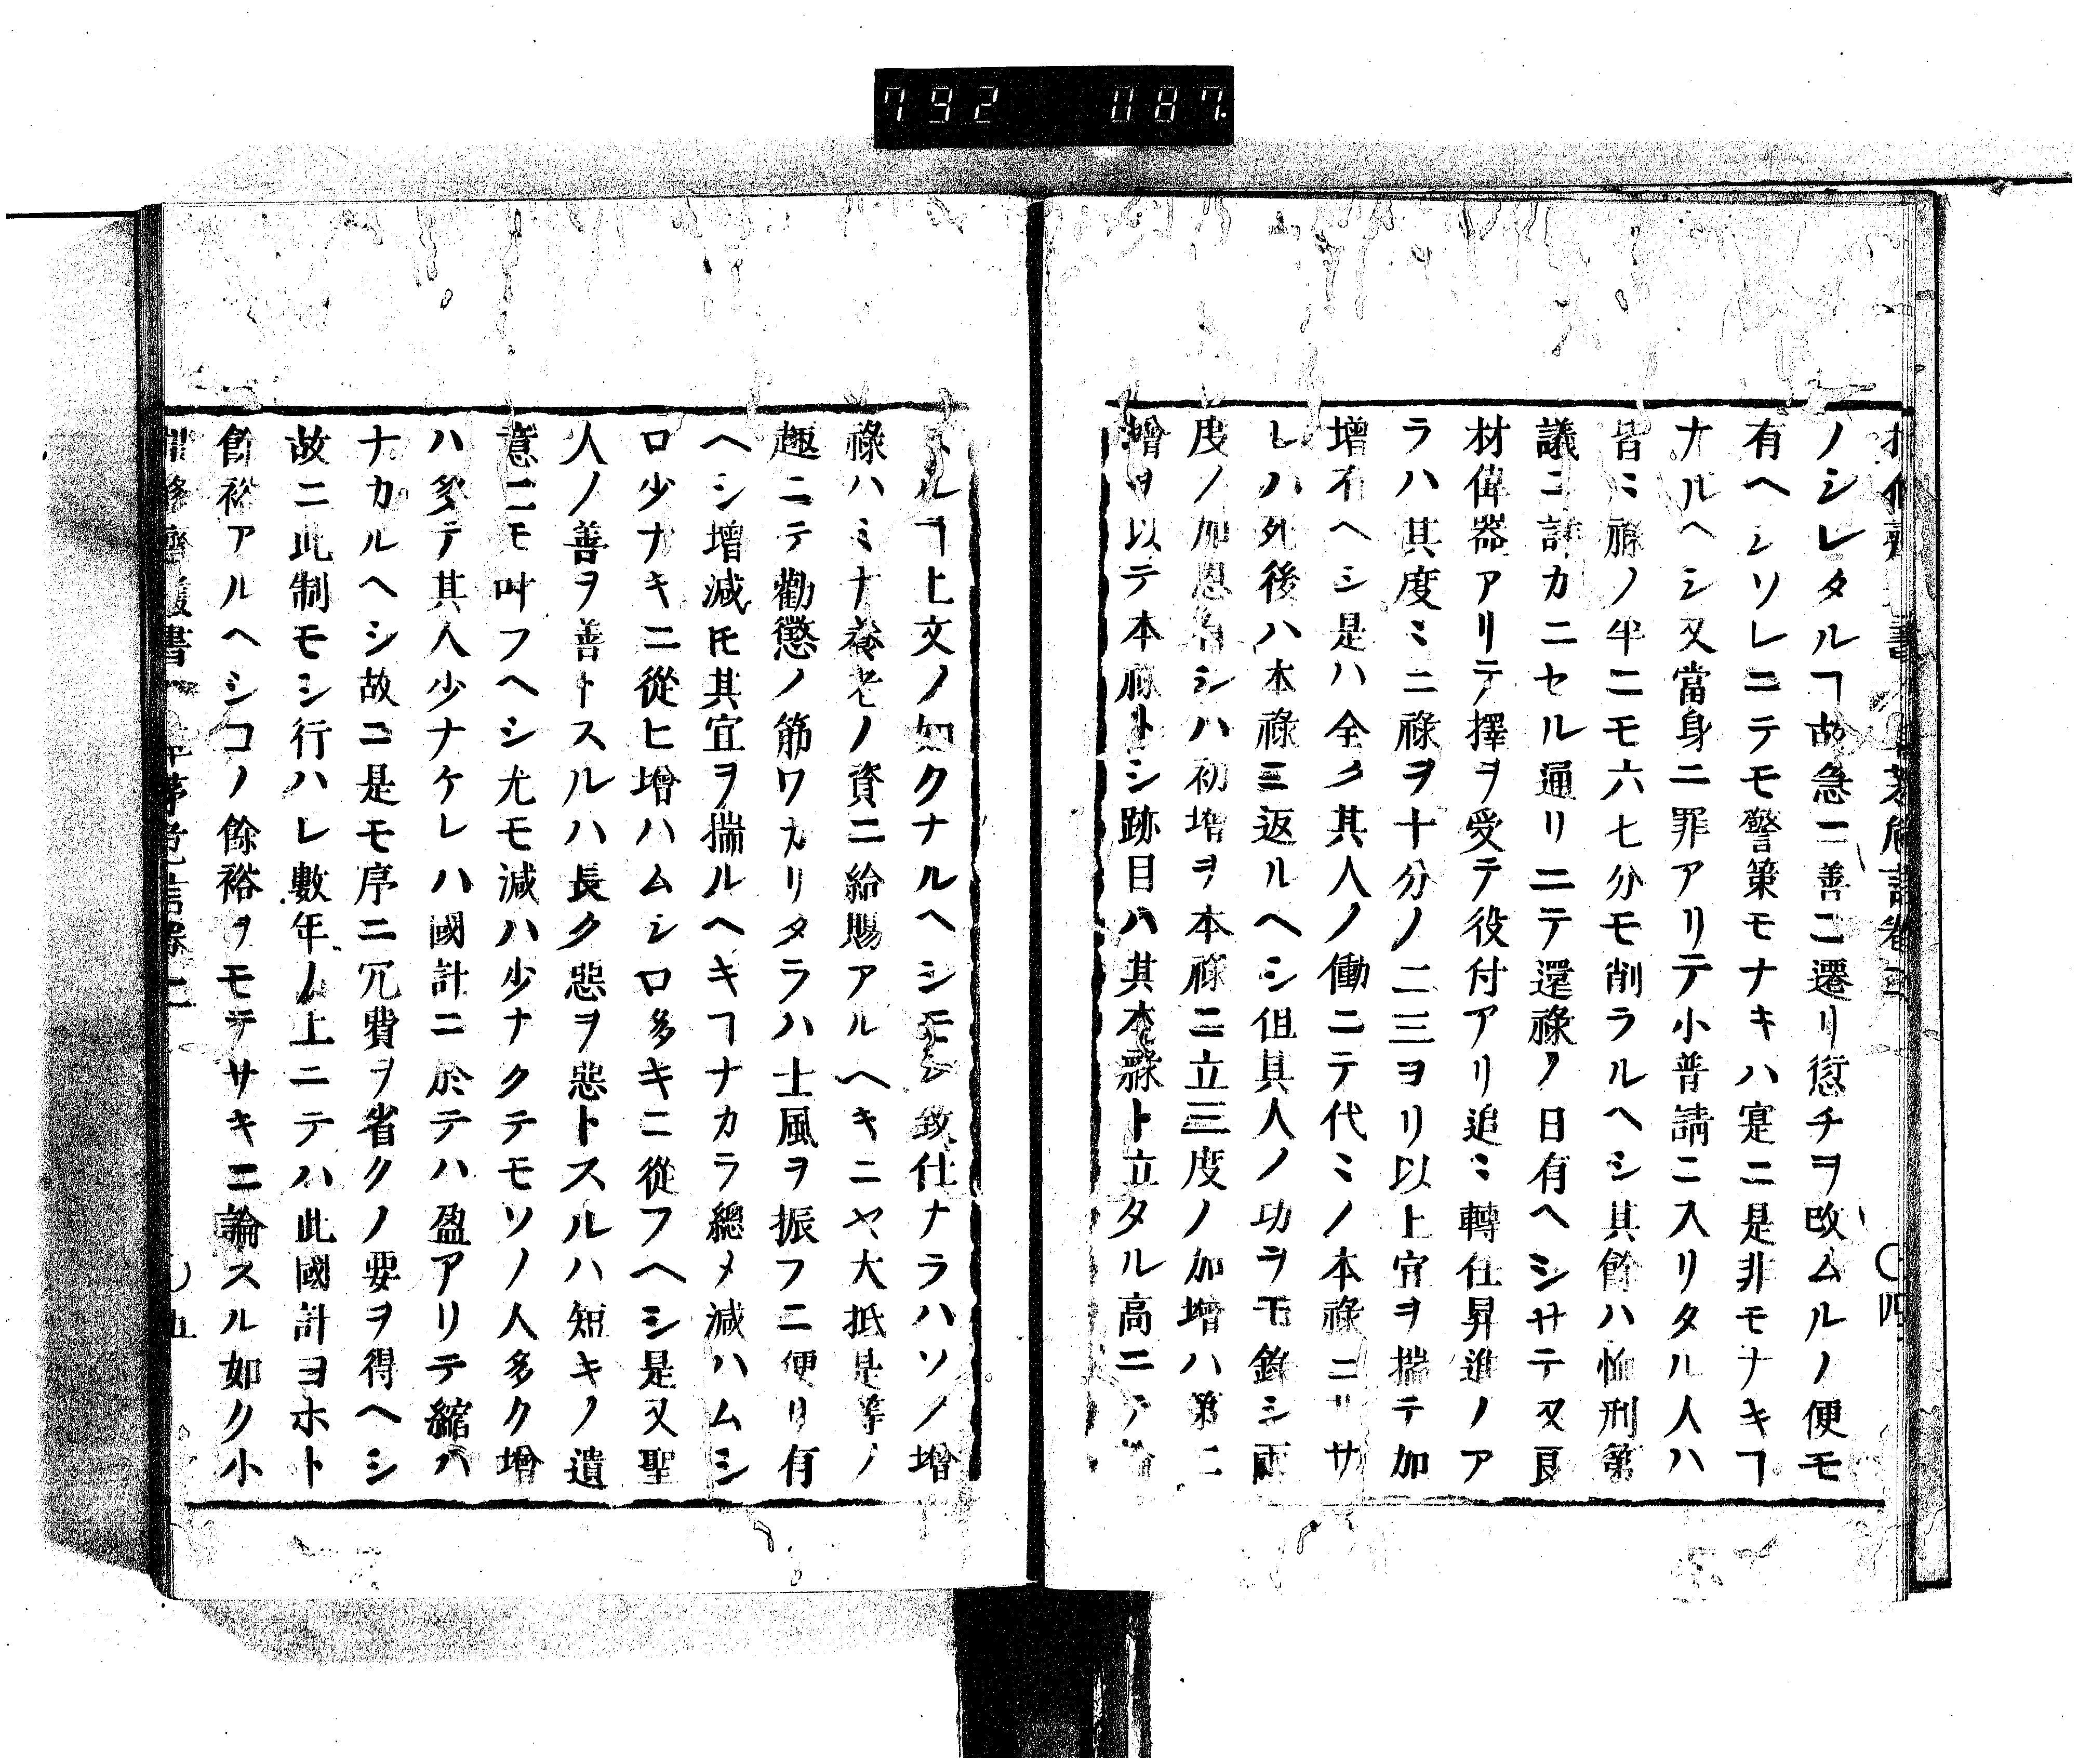 792 087
ノシレタルヿ故急ニ善ニ遷リ愆チヲ改ムルノ便モ
有ヘシソレニテモ警策モナキハ寔ニ是非モナキヿ
ナルヘシ又當身ニ罪アリテ小普請ニ入リタル人ハ
皆ミ祿ノ半ニモ六七分モ削ラルヘシ其餘ハ恤刑第
議ニ詳カニセル通リニテ還祿ノ日有ヘシサテ又良
材偉器アリテ擇ヲ受テ役付アリ追ミ轉仕昇進ノア
ラハ其度ミニ祿ヲ十分ノ二三ヨリ以上官ヲ揣テ加
增有ヘシ是ハ全ク其人ノ働ニテ代ミノ本祿ニサ
レハ死後ハ本祿ミ返ルヘシ但其人ノ功ヲモ錄シ兩
度ノ加恩ナシハ初增ヲ本祿ニ立三度ノ加增ハ第二
增ヲ以テ本祿トシ跡目ハ其本祿ト立タル高ニテ
ルヿ上文ノ如クナルヘシモシ致仕ナラハソノ增
祿ハミナ養老ノ資ニ給賜アルヘキニヤ大抵是等ノ
趣ニテ勸懲ノ筋ワカリタラハ士風ヲ振フニ便リ有
ヘシ增減𪜈其宜ヲ揣ルヘキヿナカラ總メ減ハムシ
ロ少ナキニ從ヒ增ハムシロ多キニ從フヘシ是又聖
人ノ善ヲ善トスルハ長ク惡ヲ惡トスルハ短キノ遺
意ニモ叶フヘシ尤モ減ハ少ナクテモソノ人多ク增
ハ多テ其人少ナケレハ國計ニ於テハ盈アリテ縮ハ
ナカルヘシ故ニ是モ序ニ冗費ヲ省クノ要ヲ得ヘシ
故ニ此制モシ行ハレ數年ノ上ニテハ此國計ヨホト
餘裕アルヘシコノ餘裕ヲモテサキニ論スル如ク小